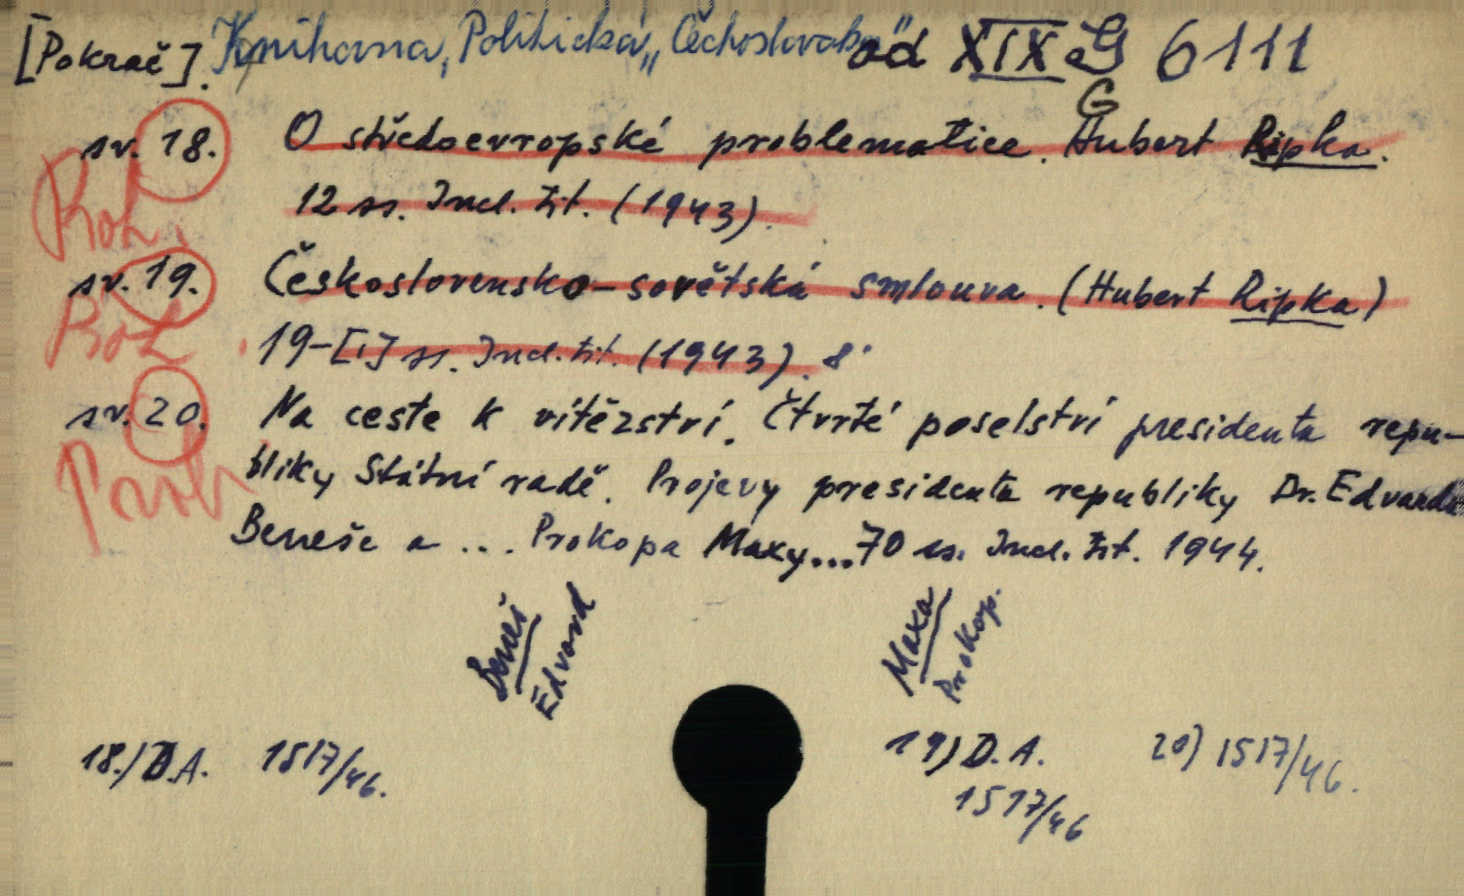 [Pokrač]. Knihovna „Politická „Čechoslovaka" od XIX G 6111
G
sv. 18. O středoevropské problematice. Hubert Ripka.
12 ss. Incl. tit. (1943).
sv. 19. Československo-sovětská smlouva. (Hubert Ripka)
19-[1] ss. Incl. tit. (1943). 8°
sv. 20. Na ceste k vítězství. Čtvrté poselství presidenta repu-
bliky Státní radě. Projevy presidenta republiky Dr. Edvarda
Beneše a ... Prokopa Maxy...70 ss. Incl. tit. 1944.
Beneš
Edvard
Maxa
Prokop.
18.) D.A. 1517/46.
19) D.A.
1517/46
20) 1517/46.